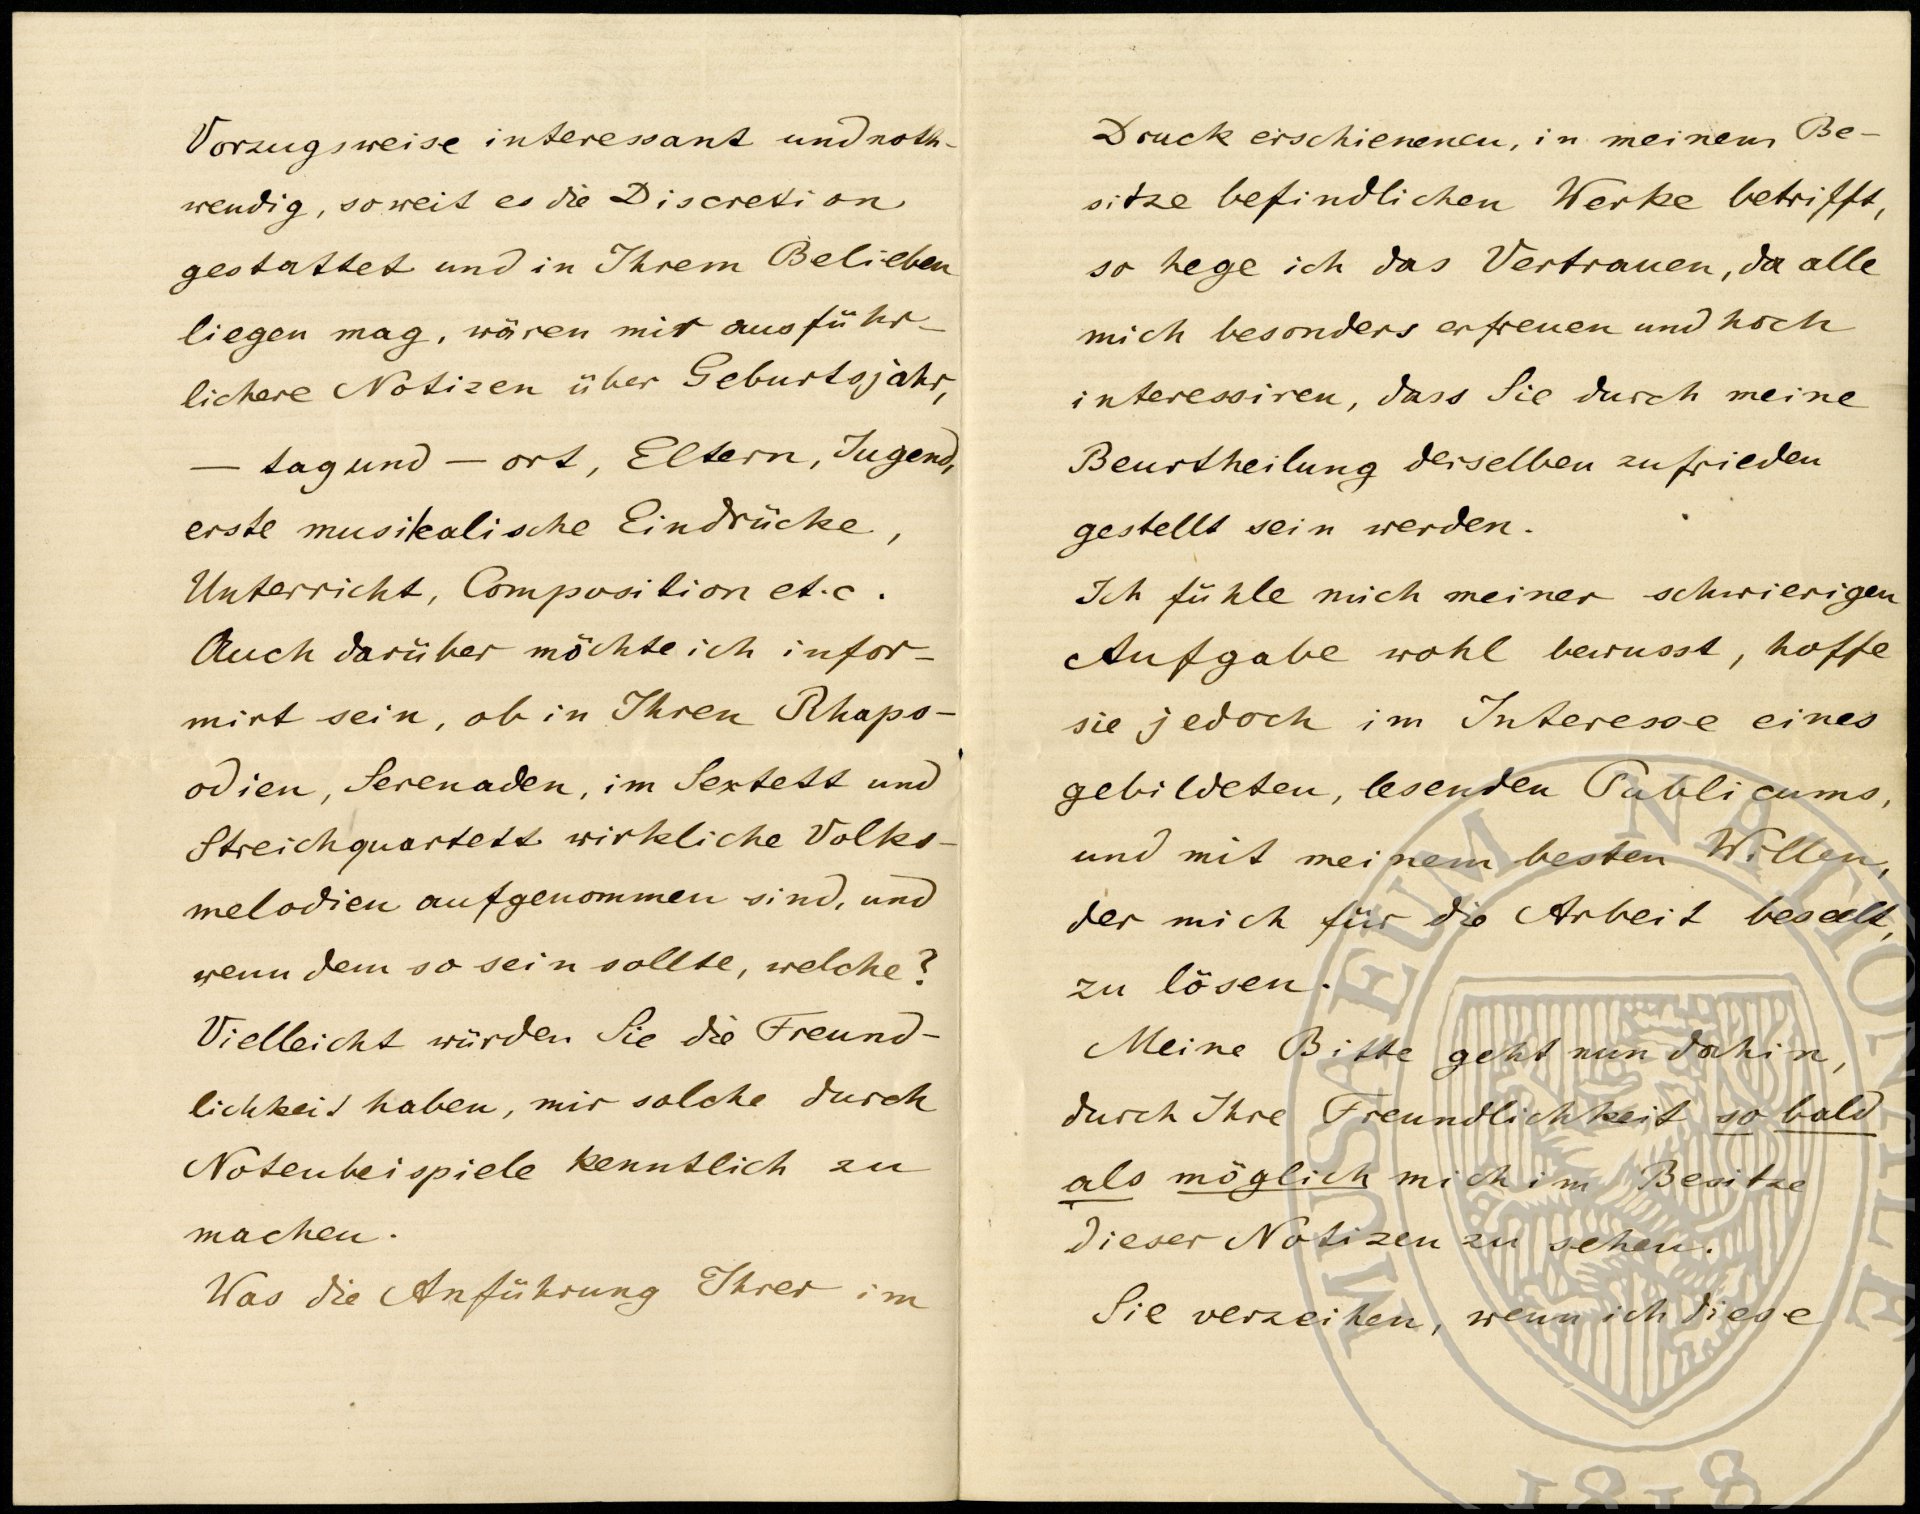 Vorzugsweise interessant und noth-
wendig, soweit es die Discretion
gestattet und in Ihrem Belieben
liegen mag, wären mir ausführ-
lichere Notizen über Geburtsjahr,
— tag und — ort, Eltern, Jugend,
erste musikalische Eindrücke,
Unterricht, Composition et.c.
Auch darüber möchte ich infor-
mirt sein, ob in Ihren Rhaps-
odien, Serenaden, im Sextett und
Streichquartett wirkliche Volks-
melodien aufgenommen sind, und
wenn dem so sein sollte, welche?
Vielleicht würden Sie die Freund-
lichkeit haben, mir solche durch
Notenbeispiele kenntlich zu
machen.
Was die Anführung Ihrer im
Druck erschienenen, in meinem Be-
sitze befindlichen Werke betrifft,
so hege ich das Vertrauen, da alle
mich besonders erfreuen und hoch
interessiren, dass Sie durch meine
Beurtheilung derselben zufrieden
gestellt sein werden.
Ich fühle mich meiner schwierigen
Aufgabe wohl bewusst, hoffe
sie jedoch im Interesse eines
gebildeten, lesenden Publicums,
und mit meinem besten Willen,
der mich für die Arbeit beseelt,
zu lösen.
Meine Bitte geht nun dahin,
durch Ihre Freundlichkeit so bald
als möglich mich im Besitze
dieser Notizen zu sehen.
Sie verzeihen, wenn ich diese
MUSAEUM NATIONALE
1818